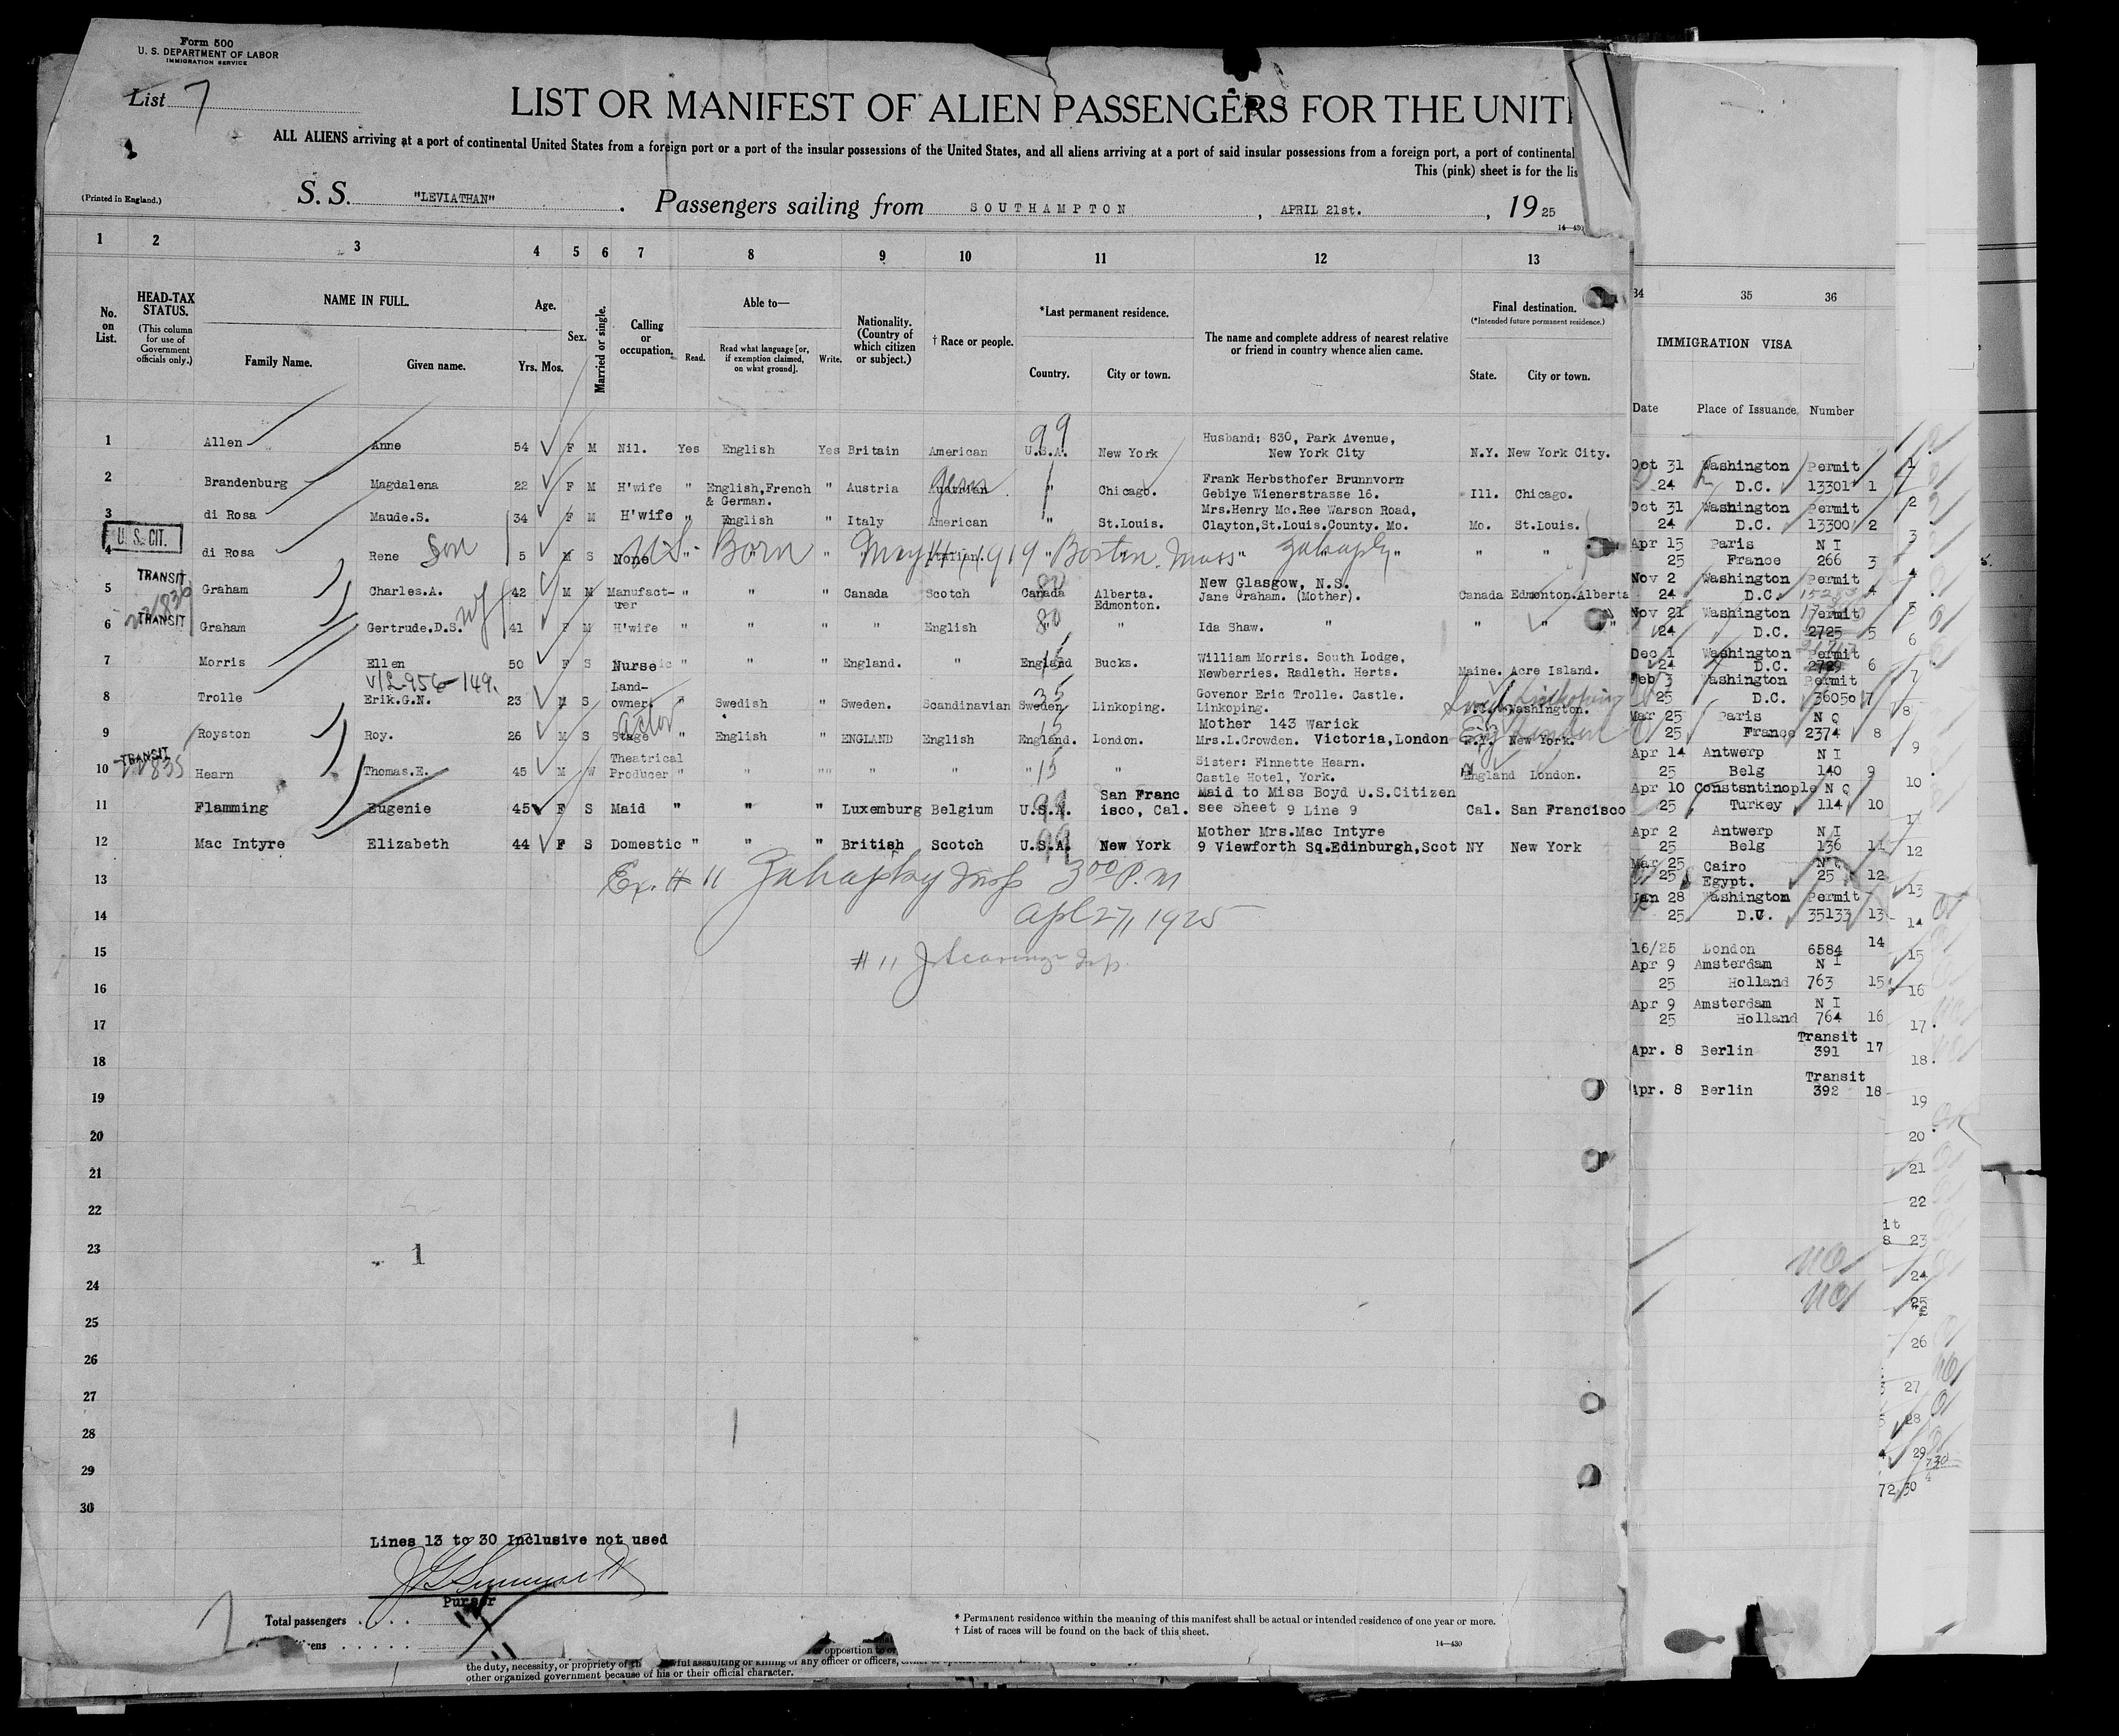 Form 500
U. S. DEPARTMENT OF LABOR
IMMIGRATION SERVICE
List 7
LIST OR MANIFEST OF ALIEN PASSENGERS FOR THE UNIT
ALL ALIENS arriving at a port of continental United States from a foreign port or a port of the insular possessions of the United States, and all aliens arriving at a port of said insular possessions from a foreign port, a port of continental
This (pink) sheet is for the lis
(Printed in England.)
S. S. "LEVIATHAN". Passengers sailing from SOUTHAMPTON, APRIL 21st., 19 25
14—430
1 2 3 4 5 6 7 8 9 10 11 12 13
No. on List.
HEAD-TAX STATUS.
(This column for use of Government officials only.)
NAME IN FULL.
Family Name. Given name.
Age.
Yrs. Mos.
Sex.
Married or single.
Calling or occupation.
Able to—
Read. Read what language [or, if exemption claimed, on what ground]. Write.
Nationality. (Country of which citizen or subject.)
† Race or people.
*Last permanent residence.
Country. City or town.
The name and complete address of nearest relative or friend in country whence alien came.
Final destination.
(*Intended future permanent residence.)
State. City or town.
99
1 Allen Anne 54 F M Nil. Yes English Yes Britain American U.S.A. New York Husband: 830, Park Avenue, New York City N.Y. New York City.
2 Brandenburg Magdalena 22 F M H'wife " English,French & German. " Austria Austrian Germ " Chicago. Frank Herbsthofer Brunnvorn Gebiye Wienerstrasse 16. Ill. Chicago.
3 di Rosa Maude.S. 34 F M H'wife " English " Italy American " St.Louis. Mrs.Henry Mc.Ree Warson Road, Clayton,St.Louis.County. Mo. Mo. St.Louis.
U. S. CIT.
4 di Rosa Rene Son 5 M S None " U S - Born " May 14, 1919 Italian. " Boston. Mass " " "
TRANSIT
5 Graham Charles.A. 42 M M Manufacturer " " " Canada Scotch Canada 80 Alberta. Edmonton. New Glasgow, N.S. Jane Graham. (Mother). Canada Edmonton.Alberta
TRANSIT
6 Graham Gertrude.D.S. wf 41 F M H'wife " " " " English " 80 " Ida Shaw. " " " "
7 Morris Ellen 50 F S Nurse " " " England. " England 15 Bucks. William Morris. South Lodge, Newberries. Radleth. Herts. Maine. Acre Island.
V/L-956-149.
8 Trolle Erik.G.N. 23 M S Land-owner. " Swedish " Sweden. Scandinavian Sweden 35 Linkoping. Govenor Eric Trolle. Castle. Linkoping. Washington.
9 Royston Roy. 26 M S Stage actor " English " ENGLAND English England. 15 London. Mother 143 Warick Mrs.L.Crowden. Victoria,London N.Y. New York. Eng London
TRANSIT
10 Hearn Thomas.E. 45 M W Theatrical Producer " " "" " " " 15 " Sister: Finnette Hearn. Castle Hotel, York. England London.
11 Flamming Eugenie 45 F S Maid " " " Luxemburg Belgium U.S.A. 99 San Francisco, Cal. Maid to Miss Boyd U.S.Citizen see Sheet 9 Line 9 Cal. San Francisco
12 Mac Intyre Elizabeth 44 F S Domestic " " " British Scotch U.S.A. 99 New York Mother Mrs.Mac Intyre 9 Viewforth Sq.Edinburgh,Scot NY New York
13 Ex. # 11 Insp 3 00 P. M
14 Apl 27, 1925
15 # 11 Insp.
16
17
18
19
20
21
22
23
24
25
26
27
28
29
30
1
Lines 13 to 30 Inclusive not used
Purser
Total passengers
* Permanent residence within the meaning of this manifest shall be actual or intended residence of one year or more.
† List of races will be found on the back of this sheet.
14—430
or opposition to or
the duty, necessity, or propriety of assaulting or killing of any officer or officers,
other organized government because of his or their official character.
34 35 36
IMMIGRATION VISA
Date Place of Issuance Number
Oct 31 24 Washington D.C. Permit 13301 1
Oct 31 24 Washington D.C. Permit 13300 2
Apr 15 25 Paris France N I 266 3
Nov 2 24 Washington D.C. Permit 4
Nov 21 24 Washington D.C. Permit 2725 5
Dec 1 24 Washington D.C. Permit 2729 6
Feb 3 25 Washington D.C. Permit 36050 7
Mar 25 25 Paris France N Q 2374 8
Apr 14 25 Antwerp Belg N I 140 9
Apr 10 25 Constantinople Turkey N Q 114 10
Apr 2 25 Antwerp Belg N I 136 11
Mar 25 25 Cairo Egypt. 25 12
Jan 28 25 Washington D.C. Permit 35133 13
16/25 London 6584 14
Apr 9 25 Amsterdam Holland N I 763 15
Apr 9 25 Amsterdam Holland N I 764 16
Apr. 8 Berlin Transit 391 17
Apr. 8 Berlin Transit 392 18